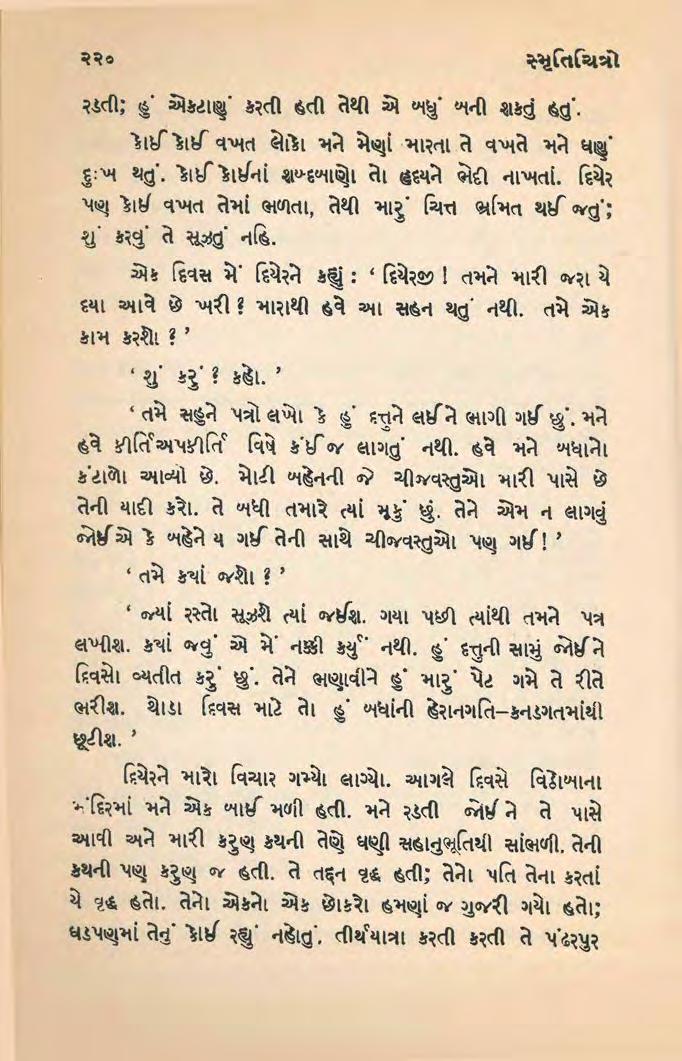 ૨૨૦ સ્મૃતિચિત્રો
રડતી; હું એકટાણું કરતી હતી તેથી એ બધું બની શકતું હતું.
કોઈ કોઈ વખત લોકો મને મેણાં મારતા તે વખતે મને ઘણું
દુઃખ થતું. કોઈ કોઈનાં શબ્દબાણો તો હૃદયને ભેદી નાખતાં. દિયેર
પણ કોઈ વખત તેમાં ભળતા, તેથી મારું ચિત્ત ભ્રમિત થઈ જતું;
શું કરવું તે સૂઝતું નહિ.
એક દિવસ મેં દિયેરને કહ્યું : ‘ દિયેરજી ! તમને મારી જરા યે
દયા આવે છે ખરી ? મારાથી હવે આ સહન થતું નથી. તમે એક
કામ કરશો ? ’
‘ શું કરું ? કહો. ’
‘ તમે સહુને પત્રો લખો કે હું દત્તુને લઈને ભાગી ગઈ છું. મને
હવે કીર્તિઅપકીર્તિ વિષે કંઈ જ લાગતું નથી. હવે મને બધાનો
કંટાળો આવ્યો છે. મોટી બહેનની જે ચીજવસ્તુઓ મારી પાસે છે
તેની યાદી કરો. તે બધી તમારે ત્યાં મૂકું છું. તેને એમ ન લાગવું
જોઈએ કે બહેને ય ગઈ તેની સાથે ચીજવસ્તુઓ પણ ગઈ ! ’
‘ તમે ક્યાં જશો ? ’
‘ જ્યાં રસ્તો સૂઝશે ત્યાં જઈશ. ગયા પછી ત્યાંથી તમને પત્ર
લખીશ. ક્યાં જવું એ મેં નક્કી કર્યું નથી. હું દત્તુની સામું જોઈને
દિવસો વ્યતીત કરું છું. તેને ભણાવીને હું મારું પેટ ગમે તે રીતે
ભરીશ. થોડા દિવસ માટે તો હું બધાંની હેરાનગતિ–કનડગતમાંથી
છૂટીશ. ’
દિયેરને મારો વિચાર ગમ્યો લાગ્યો. આગલે દિવસે વિઠોબાના
મંદિરમાં મને એક બાઈ મળી હતી. મને રડતી જોઈને તે પાસે
આવી અને મારી કરુણ કથની તેણે ઘણી સહાનુભૂતિથી સાંભળી. તેની
કથની પણ કરુણ જ હતી. તે તદ્દન વૃદ્ધ હતી; તેનો પતિ તેના કરતાં
યે વૃદ્ધ હતો. તેનો એકનો એક છોકરો હમણાં જ ગુજરી ગયો હતો;
ઘડપણમાં તેનું કોઈ રહ્યું નહોતું. તીર્થયાત્રા કરતી કરતી તે પંઢરપુર